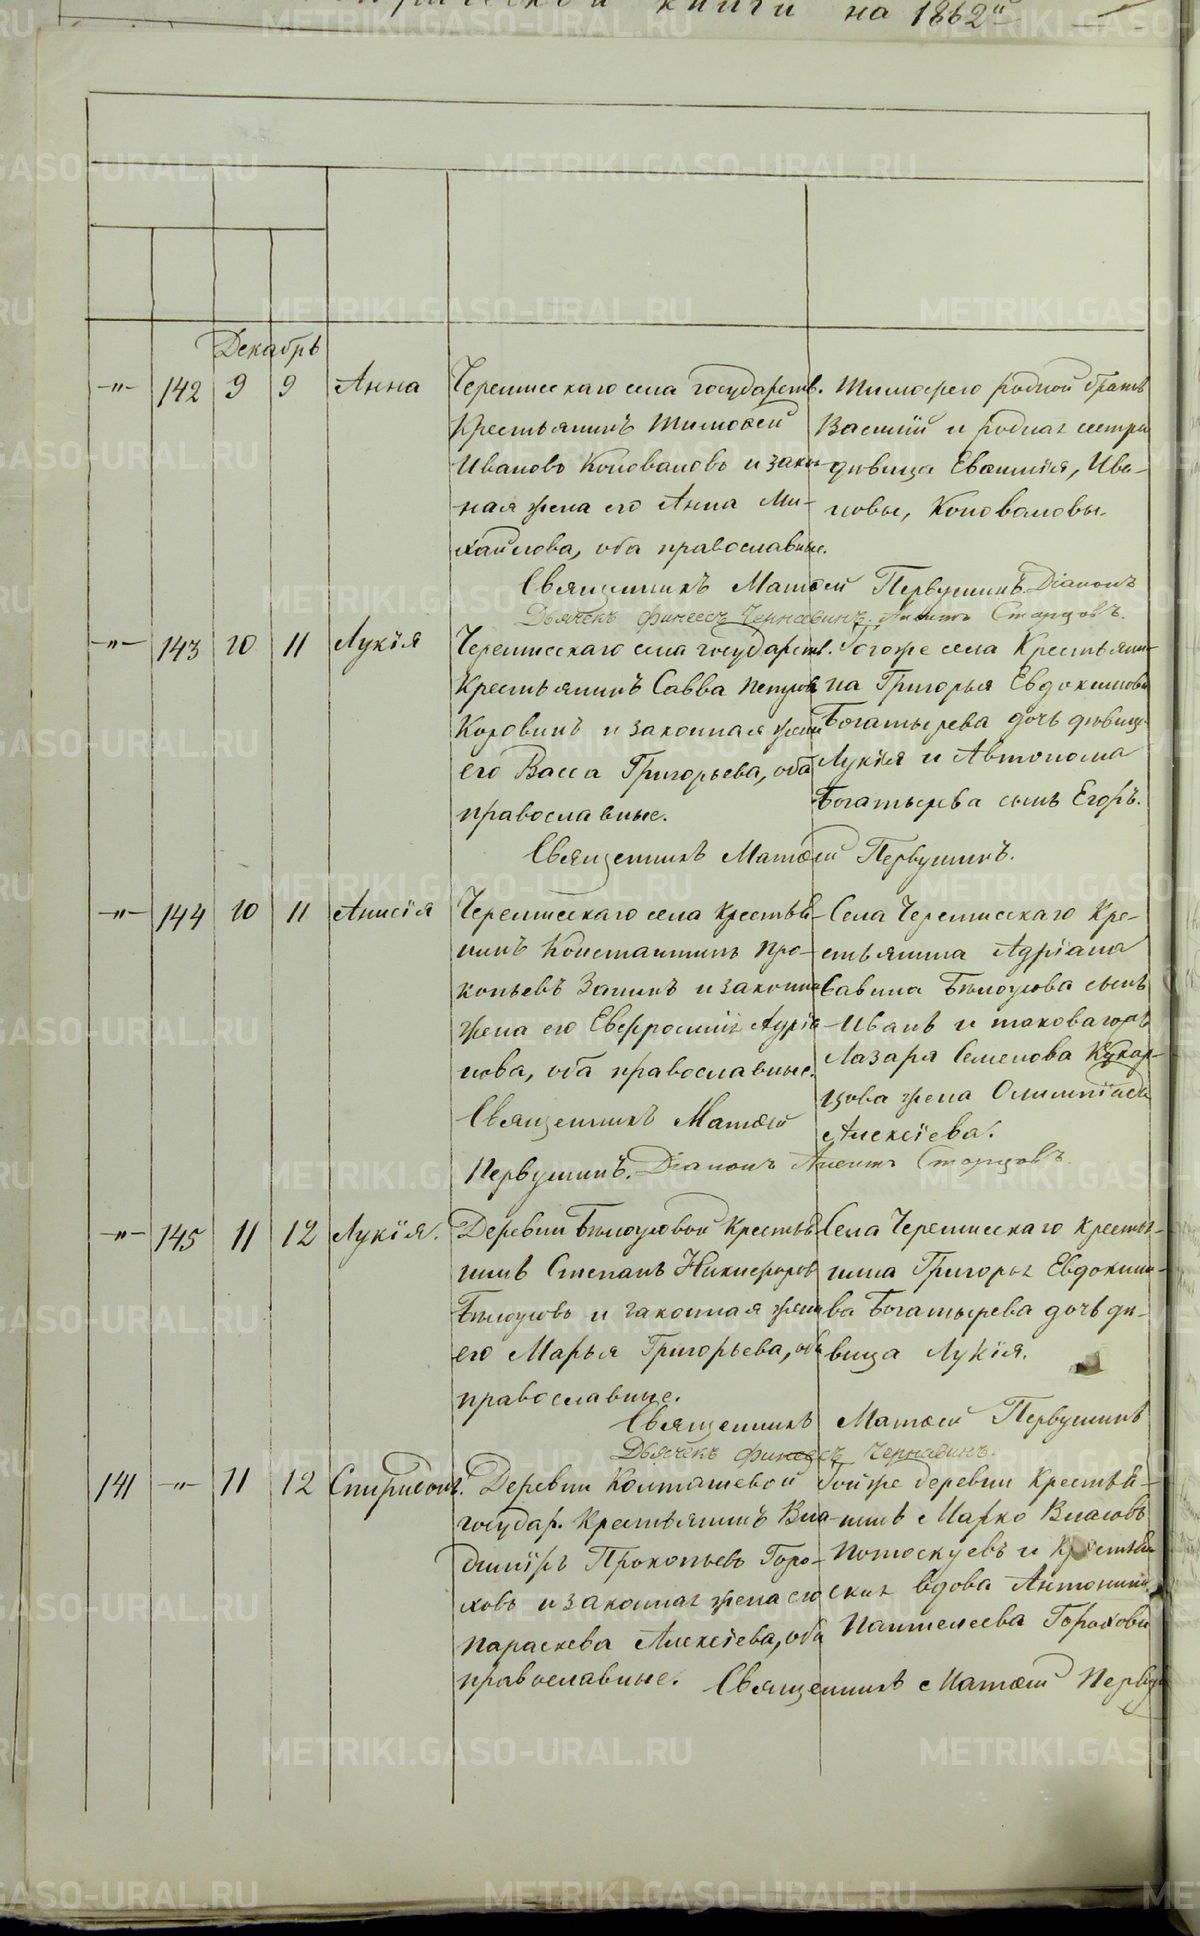 книги на 1862й
Декабрь
-"- 142 9 9 Анна
Черемисскаго села государств.
Крестьянинъ Тимофей
Ивановъ Коноваловъ и закон-
ная жена его Анна Ми-
хайлова, оба православные.
Тимофею родной братъ
Василій и родная сестра
дѣвица Евѳимія, Ива-
новы, Коноваловы.
Священникъ Матѳей Первушинъ. Діаконъ
Дьячекъ Финеесъ Чернавинъ. Старцовъ.
-"- 143 10 11 Лукія
Черемисскаго села государств.
Крестьянинъ Савва Петровъ
Коровинъ и законная жена
его Васса Григорьева, оба
православные.
Тогоже села Крестьяни-
на Григорья Евдокимова
Богатырева дочь дѣвица
Лукія и Автонома
Богатырева сынъ Егоръ.
Священникъ Матѳей Первушинъ.
-"- 144 10 11 Анисія
Черемисскаго села Крестья-
нинъ Константинъ Про-
копьевъ Запинъ и законная
жена его Евфросинія Адріа-
нова, оба православные.
Села Черемисскаго Кре-
стьянина Адріана
Савина Бѣлоусова сынъ
Иванъ и таковагожъ
Лазаря Семенова Кукар-
цова жена Олимпіада
Алексіева.
Священникъ Матѳей
Первушинъ. Діаконъ Старцовъ.
-"- 145 11 12 Лукія.
Деревни Бѣлоусовой Крестья-
нинъ Степанъ Никифоровъ
Бѣлоусовъ и законная жена
его Марья Григорьева, оба
православные.
Села Черемисскаго крестья-
нина Григорья Евдокимо-
ва Богатырева дочь дѣ-
вица Лукія.
Священникъ Матѳей Первушинъ
Дьячекъ Финеесъ Чернавинъ.
141 -"- 11 12 Спиридонъ.
Деревни Колташевой
государ. Крестьянинъ Вла-
диміръ Прокопьевъ Горо-
ховъ и законная жена его
Параскева Алексіева, оба
православные.
Тойже деревни Крестья-
нинъ Марко Власовъ
Потоскуевъ и Крестьян-
ская вдова Антонина
Пантелеева Горохова
Священникъ Матѳей Перву
METRIKI.GASO-URAL.RU